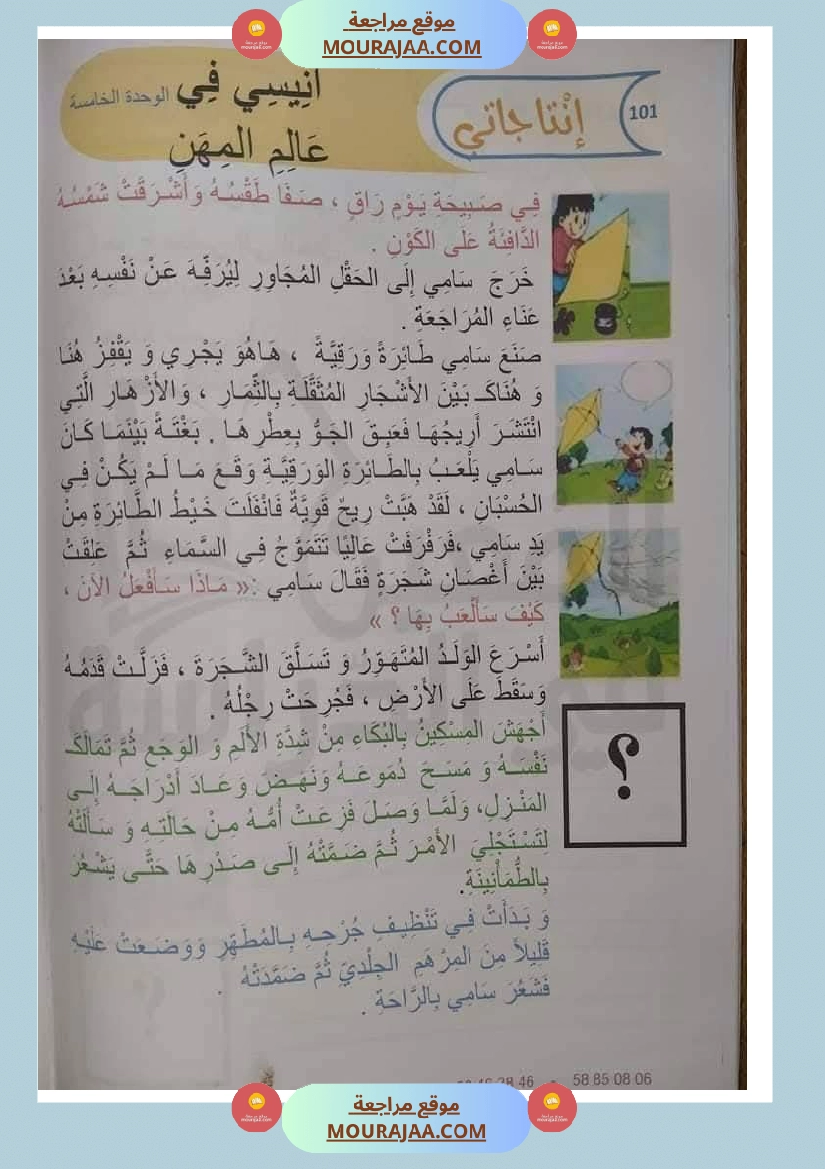 موقع مراجعة
MOURAJAA.COM
101
إنْتاجاتي
أنِيسِي فِي
الوحدة الخامسة
عَالَمِ المِهَنِ
فِي صَبِيحَةِ يَوْمٍ رَاقٍ ، صَفَا طَقْسُهُ وَأَشْرَقَتْ شَمْسُهُ
الدَّافِئَةُ عَلَى الكَوْنِ .
خَرَجَ سَامِي إِلَى الحَقْلِ المُجَاوِرِ لِيُرَفِّهَ عَنْ نَفْسِهِ بَعْدَ
عَنَاءِ المُرَاجَعَةِ .
صَنَعَ سَامِي طَائِرَةً وَرَقِيَّةً ، هَاهُوَ يَجْرِي وَ يَقْفِزُ هُنَا
وَ هُنَاكَ بَيْنَ الأَشْجَارِ المُثَقَّلَةِ بِالثِّمَارِ ، وَالأَزْهَارِ الَّتِي
انْتَشَرَ أَرِيجُهَا فَعَبِقَ الجَوُّ بِعِطْرِهَا . بَغْتَةً بَيْنَمَا كَانَ
سَامِي يَلْعَبُ بِالطَائِرَةِ الوَرَقِيَّةِ وَقَعَ مَا لَمْ يَكُنْ فِي
الحُسْبَانِ ، لَقَدْ هَبَّتْ رِيحٌ قَوِيَّةٌ فَانْفَلَتَ خَيْطُ الطَّائِرَةِ مِنْ
يَدِ سَامِي ،فَرَفْرَفَتْ عَالِيًا تَتَمَوَّجُ فِي السَّمَاءِ ثُمَّ عَلِقَتْ
بَيْنَ أَغْصَانِ شَجَرَةٍ فَقَالَ سَامِي :« مَاذَا سَأَفْعَلُ الآنَ ،
كَيْفَ سَأَلْعَبُ بِهَا ؟ »
أَسْرَعَ الوَلَدُ المُتَهَوِّرُ وَ تَسَلَّقَ الشَّجَرَةَ ، فَزَلَّتْ قَدَمُهُ
وَسَقَطَ عَلَى الأَرْضِ ، فَجُرِحَتْ رِجْلُهُ .
؟
أَجْهَشَ المِسْكِينُ بِالبُكَاءِ مِنْ شِدَّةِ الأَلَمِ وَ الوَجَعِ ثُمَّ تَمَالَكَ
نَفْسَهُ وَ مَسَحَ دُمُوعَهُ وَنَهَضَ وَعَادَ أَدْرَاجَهُ إِلَى
المَنْزِلِ، وَلَمَّا وَصَلَ فَزِعَتْ أُمُّهُ مِنْ حَالَتِهِ وَ سَأَلَتْهُ
لِتَسْتَجْلِيَ الأَمْرَ ثُمَّ ضَمَّتْهُ إِلَى صَدْرِهَا حَتَّى يَشْعُرَ
بِالطُّمَأْنِينَةِ.
وَ بَدَأَتْ فِي تَنْظِيفِ جُرْحِهِ بِالمُطَهِّرِ وَوَضَعَتْ عَلَيْهِ
قَلِيلاً مِنَ المِرْهَمِ الجِلْدِيّ ثُمَّ ضَمَّدَتْهُ .
فَشَعُرَ سَامِي بِالرَّاحَةِ .
58 85 08 06
موقع مراجعة
MOURAJAA.COM